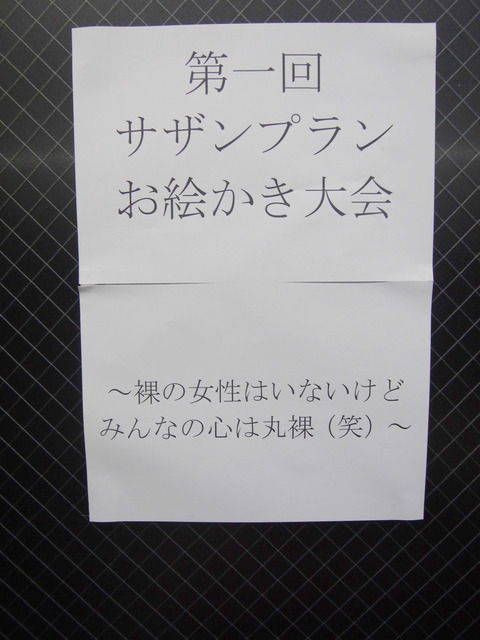 第一回
サザンプラン
お絵かき大会
～裸の女性はいないけど
みんなの心は丸裸（笑）～